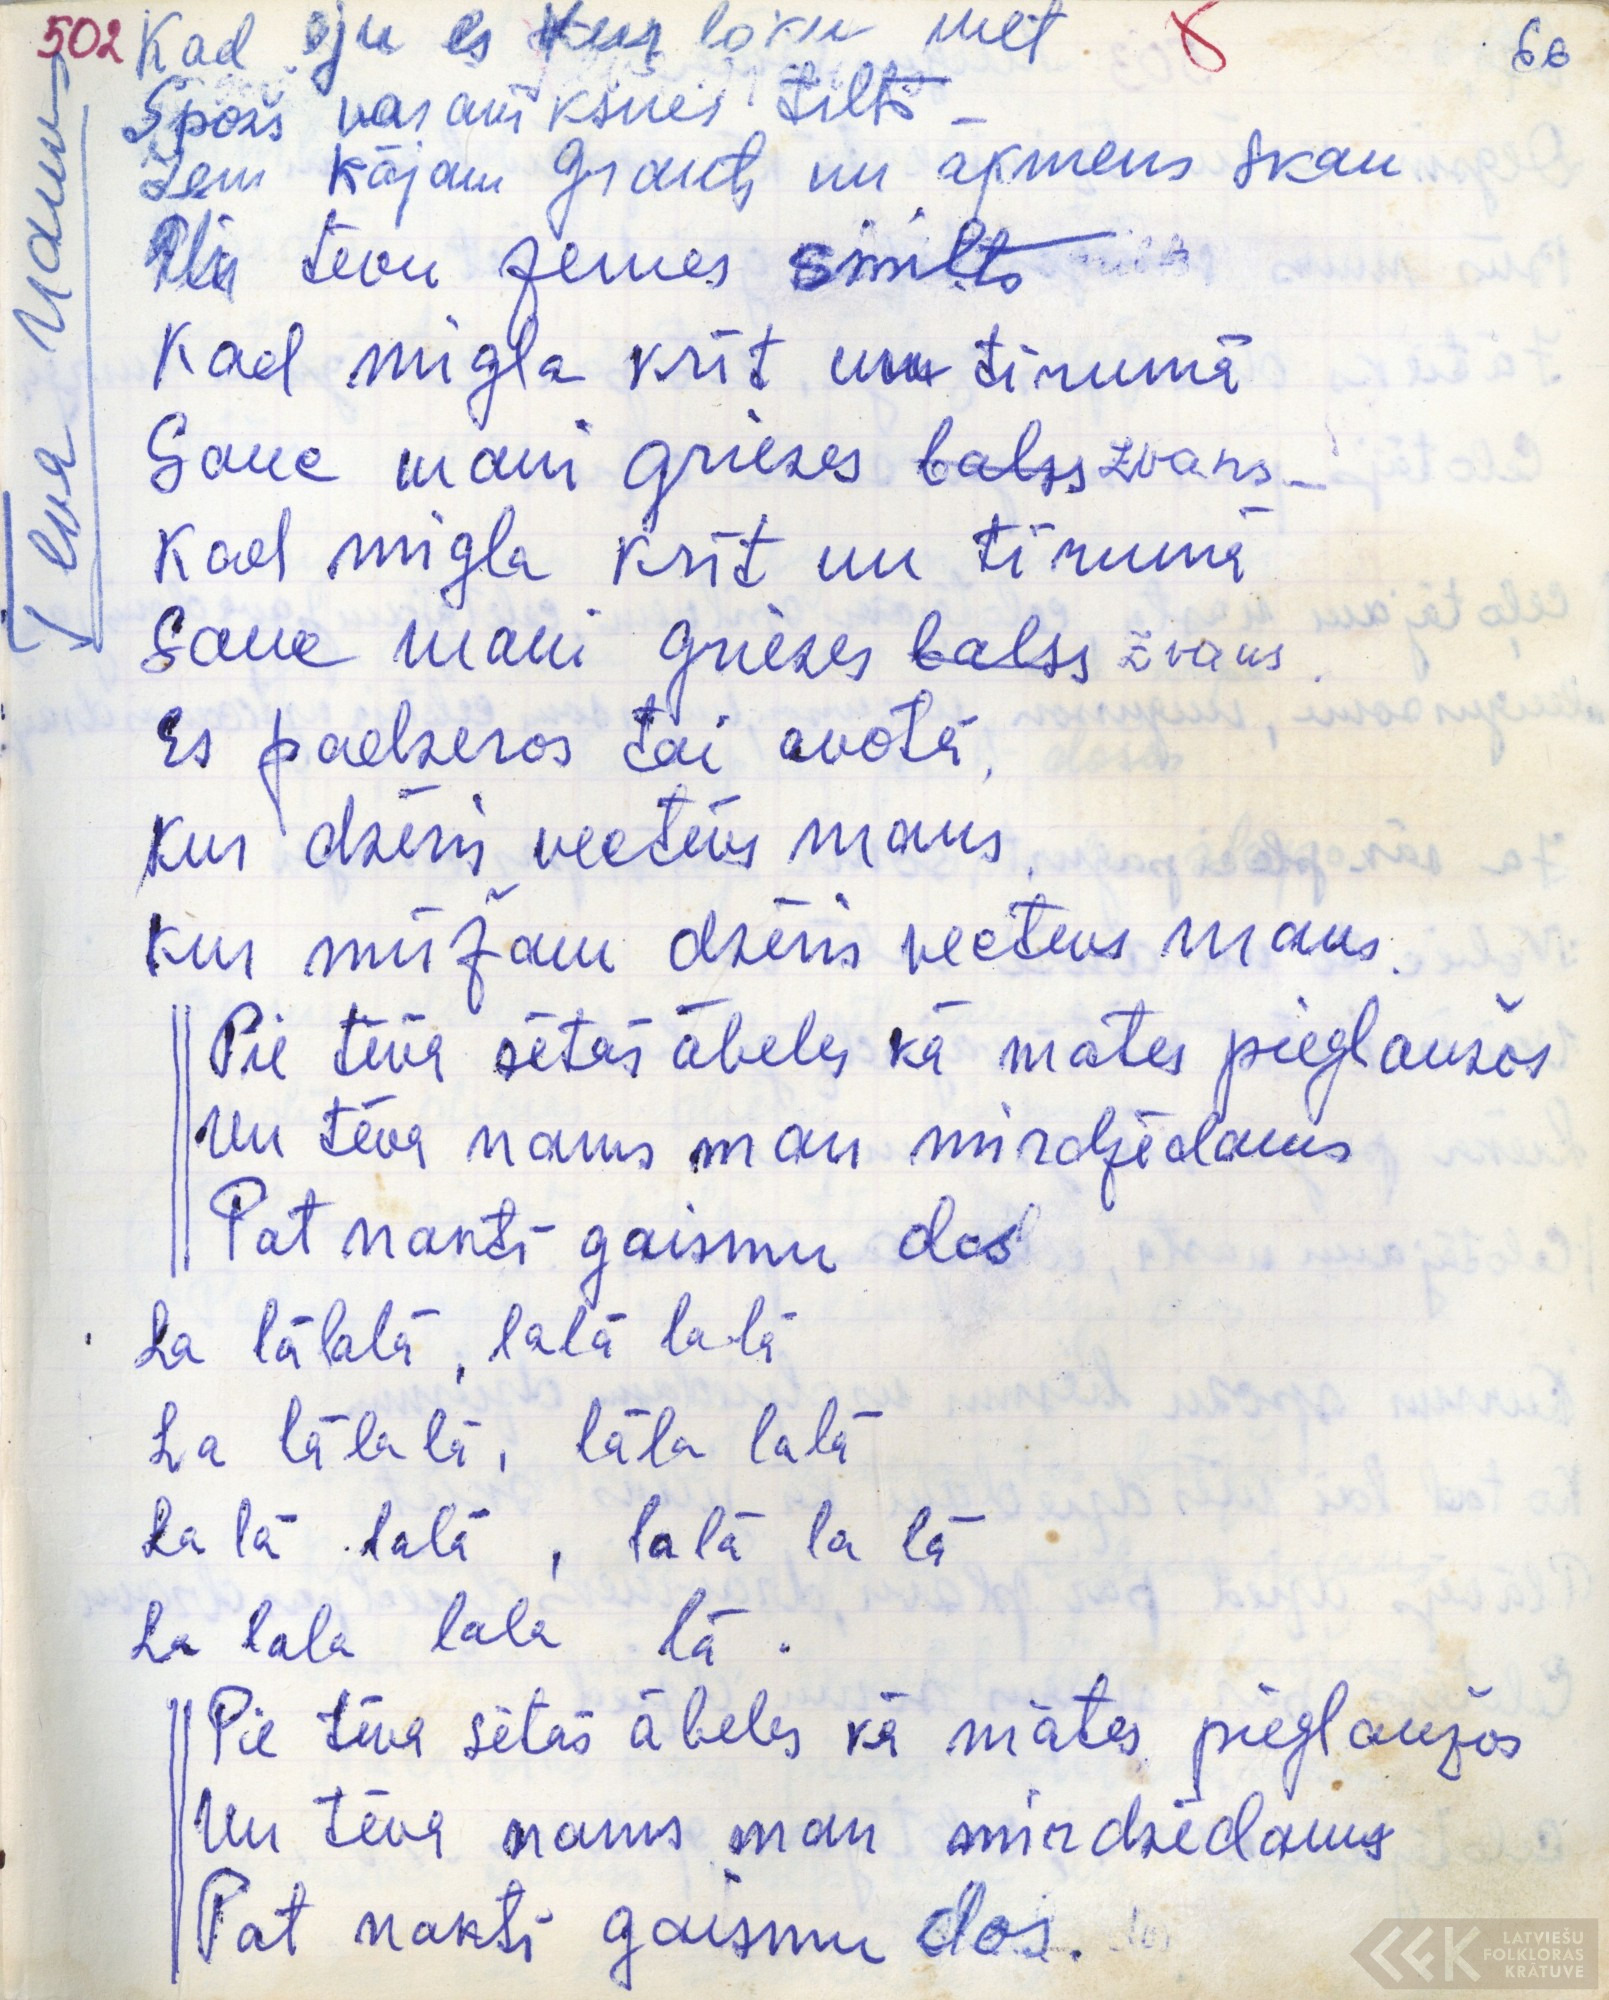 502 Kad eju es kur loku met 66
Tēva nams
Spožs varavīksnes tilts –
Zem kājām grants un akmens skan
Un tēvu zemes smilts
Kad migla krīt un tīrumā
Sauc mani griezes balss zvans –
Kad migla krīt un tīrumā
Sauc mani griezes balss zvans.
Es padzeros tai avotā,
Kur dzēris vectēvs mans
Kur mūžam dzēris vectevs mans.
Pie tēva sētas ābeles kā mātes pieglaužos
Un tēva nams man mirdzēdams
Pat naktī gaismu dos
La lālalā, lalā lalā
La lālalā, lāla lalā
La lā lalā, lalā la lā
La lala lala lā.
Pie tēva sētas ābeles kā mātes pieglaužos
Un tēva nams man mirdzēdams
Pat naktī gaismu dos.
LATVIEŠU
FOLKLORAS
KRĀTUVE